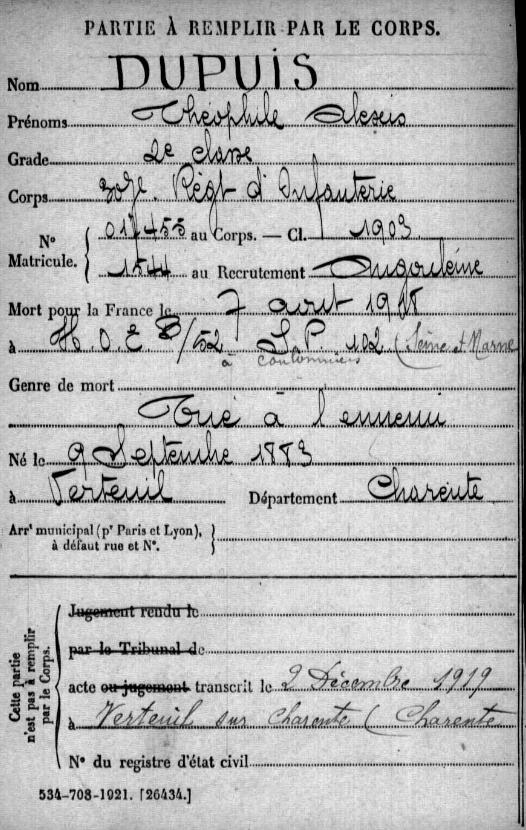 PARTIE À REMPLIR PAR LE CORPS.
Nom DUPUIS
Prénoms Théophile Alexis
Grade 2e classe
Corps 307e. Régt d'Infanterie
N° Matricule. { 017455 au Corps. — Cl. 1903
1544 au Recrutement Angoulème
Mort pour la France le 7 aout 1918
à H.O.E B/52 S.P. 102 (Seine et Marne
à Coulommiers
Genre de mort
Tué à l'ennemi
Né le 9 Septembre 1883
à Verteuil Département Charente
Arrt municipal (pr Paris et Lyon), }
à défaut rue et N°.
Cette partie n'est pas à remplir par le Corps.
Jugement rendu le
par le Tribunal de
acte ou jugement transcrit le 2 Décembre 1919
à Verteuil sur Charente (Charente
N° du registre d'état civil
534-708-1921. [26434.]